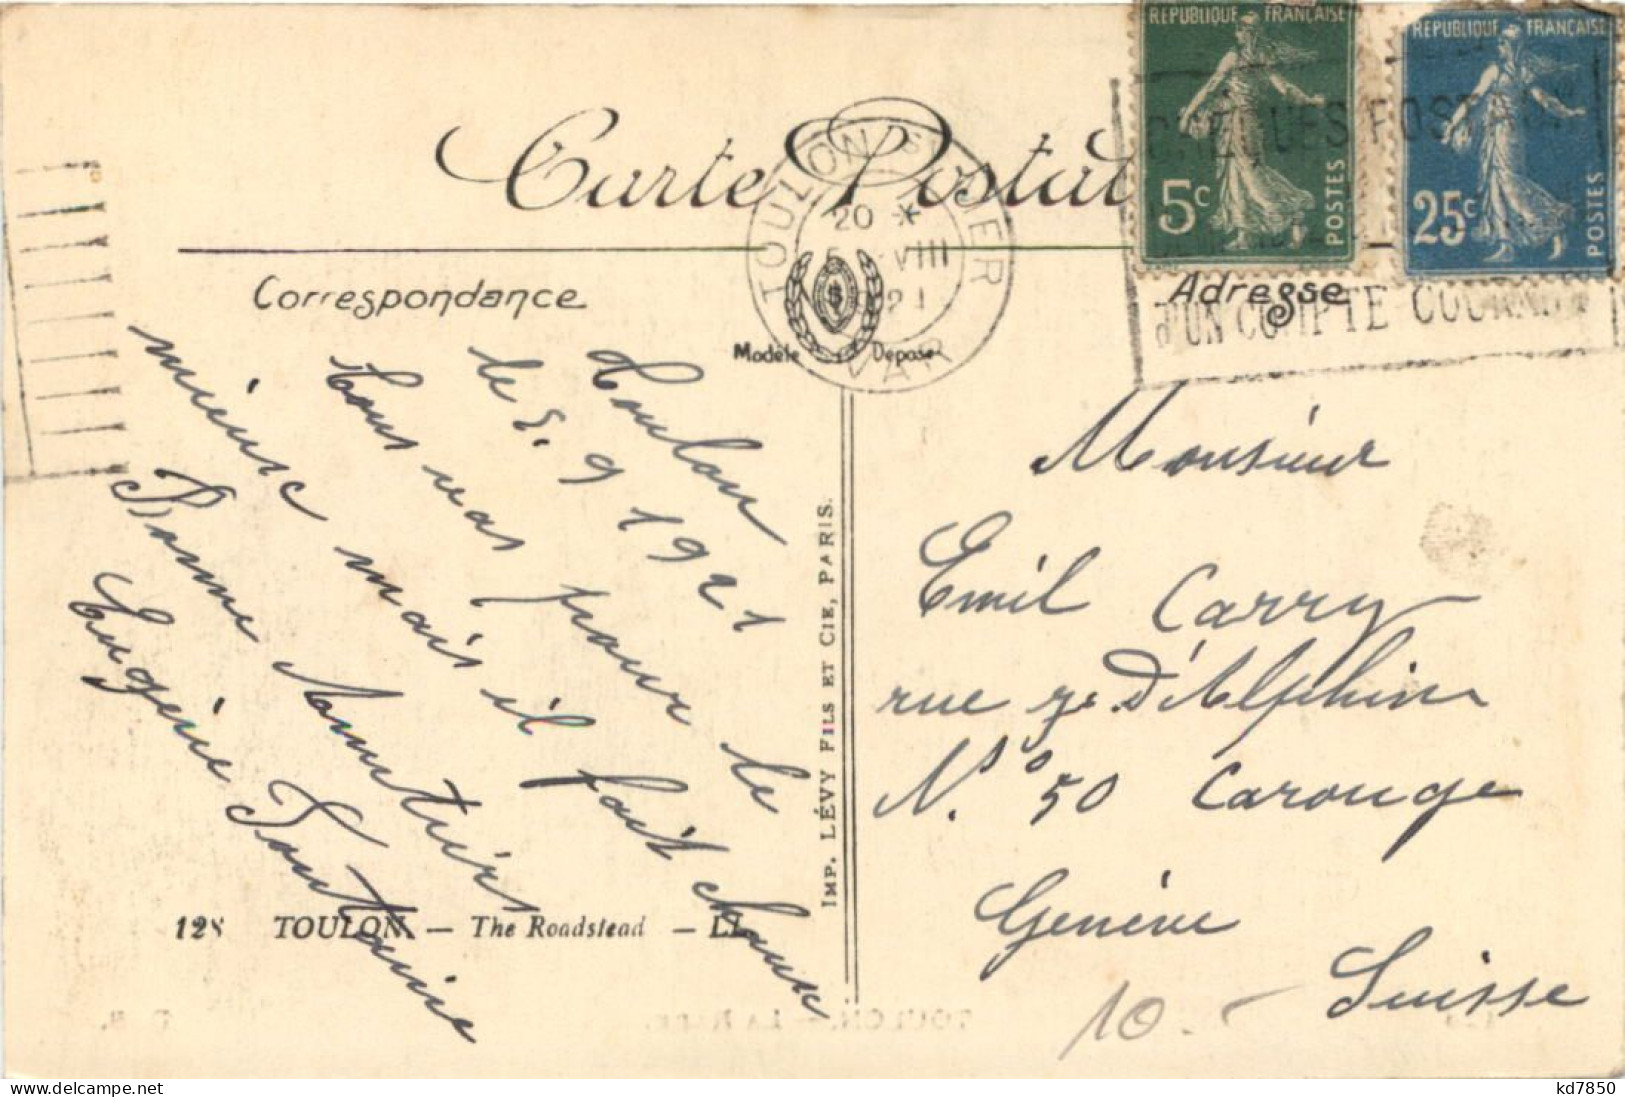 RÉPUBLIQUE FRANÇAISE
5c
POSTES
RÉPUBLIQUE FRANÇAISE
25c
POSTES
Carte Postale
TOULON Sr MER
20 *
5 VIII
21
VAR
CHÈQUES POSTAUX
d'UN COMPTE COURANT
Correspondance
Adresse
Modèle Déposé
Toulon
le 5. 9 1921
Tous vas pour le
mieux mais il fait chaux
Bonne
Eugénie
Monsieur
Emil Carry
rue J. D'Alphin
N.º 50 Carouge
Genève
Suisse
10.-
IMP. LÉVY FILS ET CIE, PARIS.
128 TOULON. — The Roadstead — LL.
kd7850